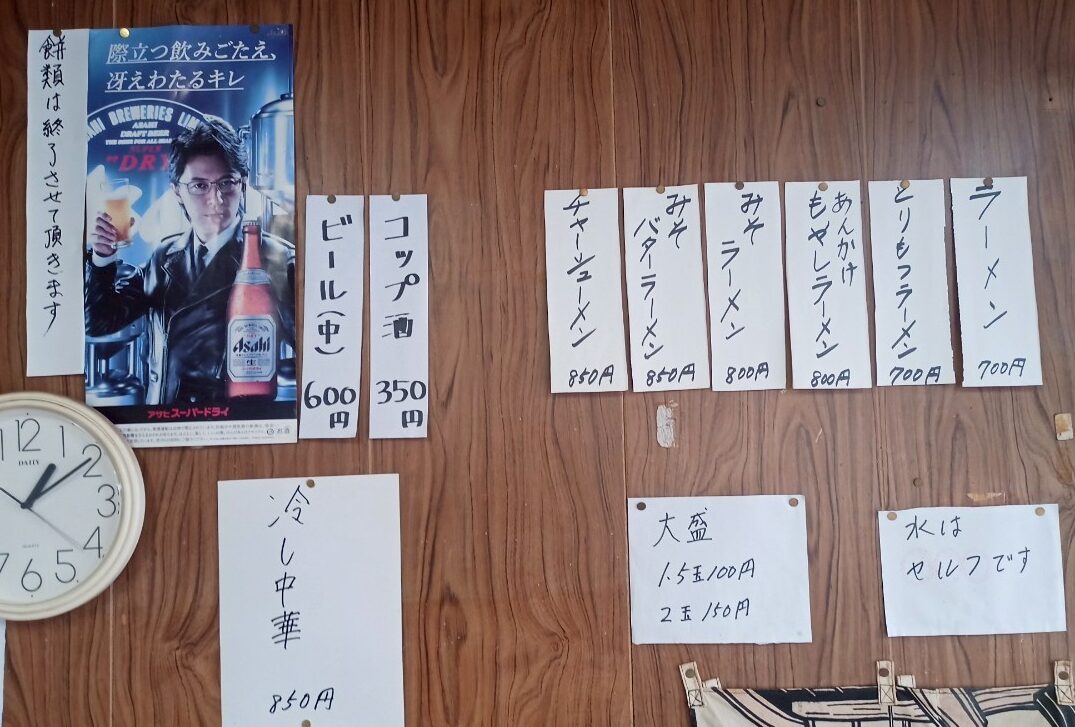 餅類は終了させて頂きます
際立つ飲みごたえ、
冴えわたるキレ
BREWERIES LIM
ASAHI
DRAFT BEER
THE BEER FOR ALL
SUPER
"DRY
Asahi
生
アサヒスーパードライ
お酒
ビール(中)
600円
コップ酒
350円
ラーメン
700円
とりもつラーメン
700円
あんかけ
もやしラーメン
800円
みそ
ラーメン
800円
みそ
バターラーメン
850円
チャーシューメン
850円
12
1
2
3
4
5
6
7
DAILY
QUARTZ
冷し中華
850円
大盛
1.5玉100円
2玉150円
水は
セルフです